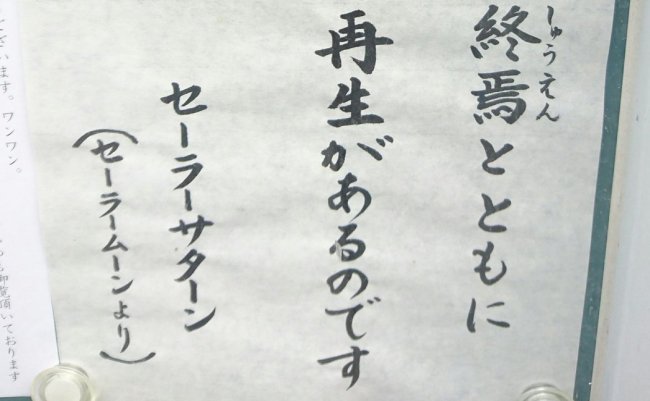 終焉とともに
しゅうえん
再生があるのです
セーラーサターン
（セーラームーンより）
ございます。ワンワン。
も御覧頂いております